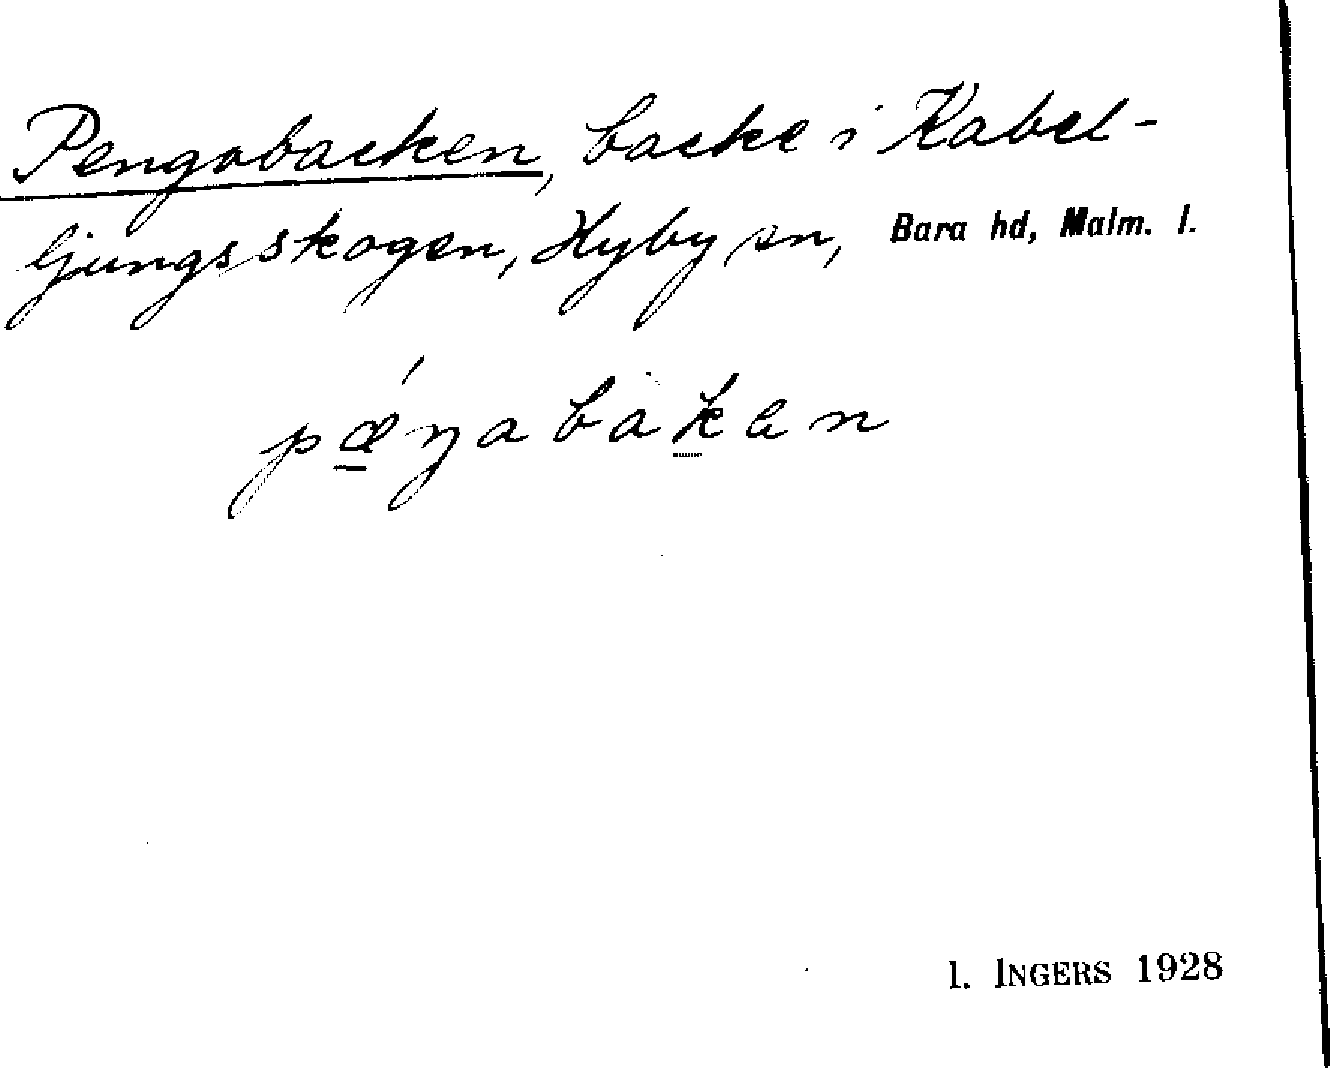 Pengabacken, backe i Kabel-
ljungsskogen, Hyby sn, Bara hd, Malm. l.
pǽŋabakan
I. INGERS 1928